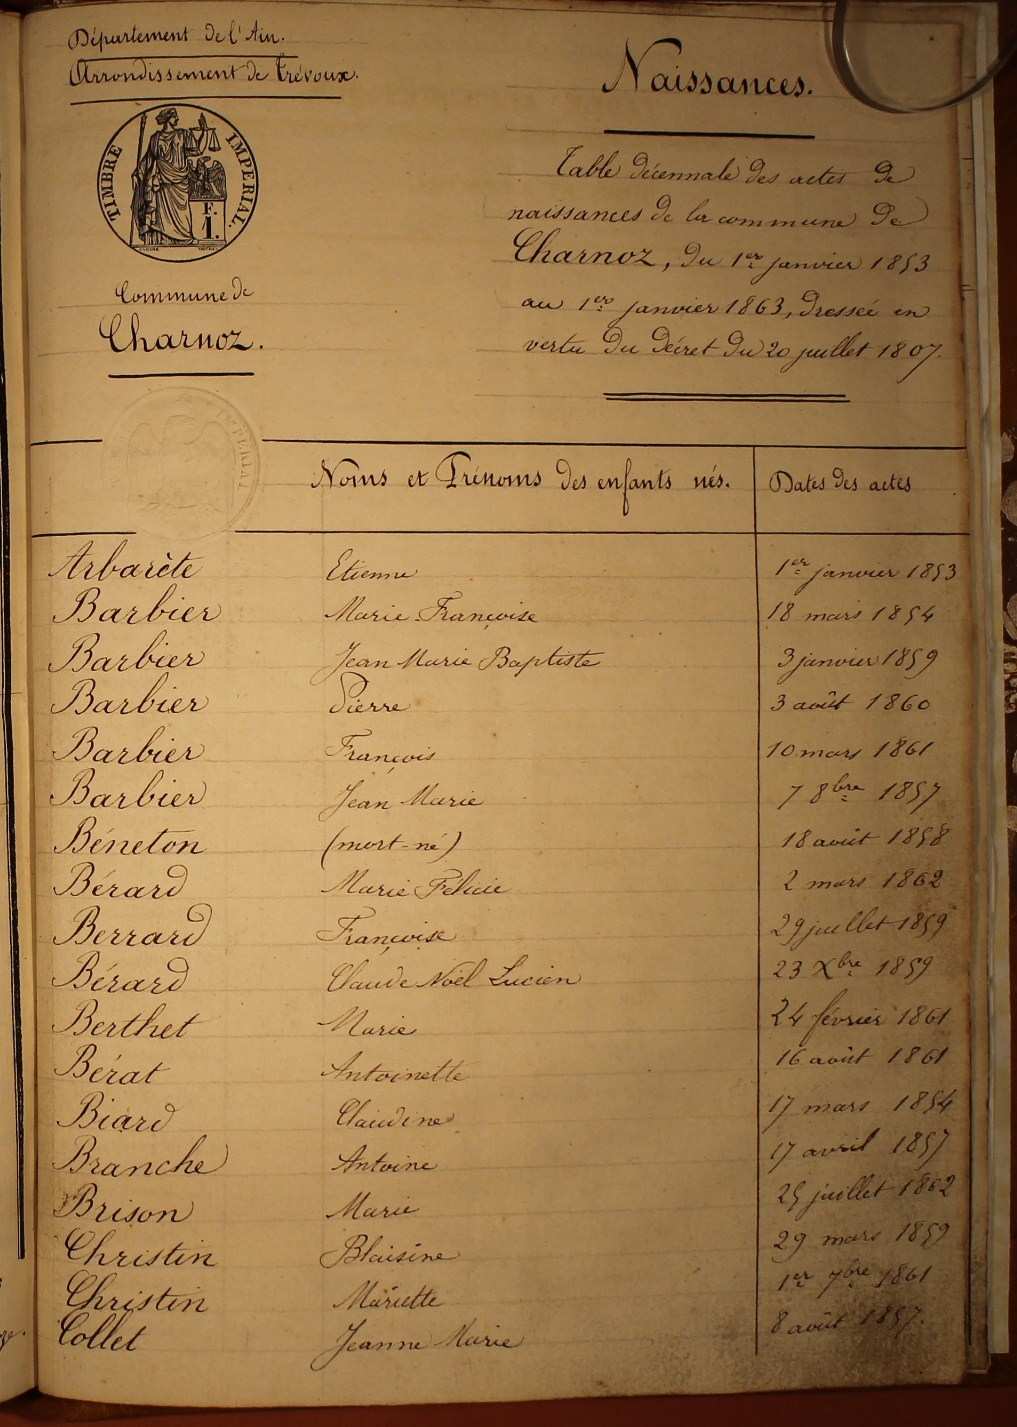 Département de l'Ain.
Arrondissement de Trévoux.
TIMBRE IMPERIAL.
F. 1.
Commune de
Charnoz.
Naissances.
Table décennale des actes de
naissances de la commune de
Charnoz, du 1er janvier 1853
au 1er janvier 1863, dressée en
vertu du décret du 20 juillet 1807.
Noms et Prénoms des enfants nés. Dates des actes
Arbarète Etienne 1er janvier 1853
Barbier Marie Françoise 18 mars 1854
Barbier Jean Marie Baptiste 3 janvier 1859
Barbier Pierre 3 août 1860
Barbier François 10 mars 1861
Barbier Jean Marie 7 8bre 1857
Béneton (mort-né) 18 août 1858
Bérard Marie Felicie 2 mars 1862
Berrard Françoise 29 juillet 1859
Bérard Claude Noël Lucien 23 Xbre 1859
Berthet Marie 24 février 1861
Bérat Antoinette 16 août 1861
Biard Claudine 17 mars 1854
Branche Antoine 17 avril 1857
Brison Marie 25 juillet 1862
Christin Blaisine 29 mars 1859
Christin Mariette 1er 7bre 1861
Collet Jeanne Marie 8 août 1857.